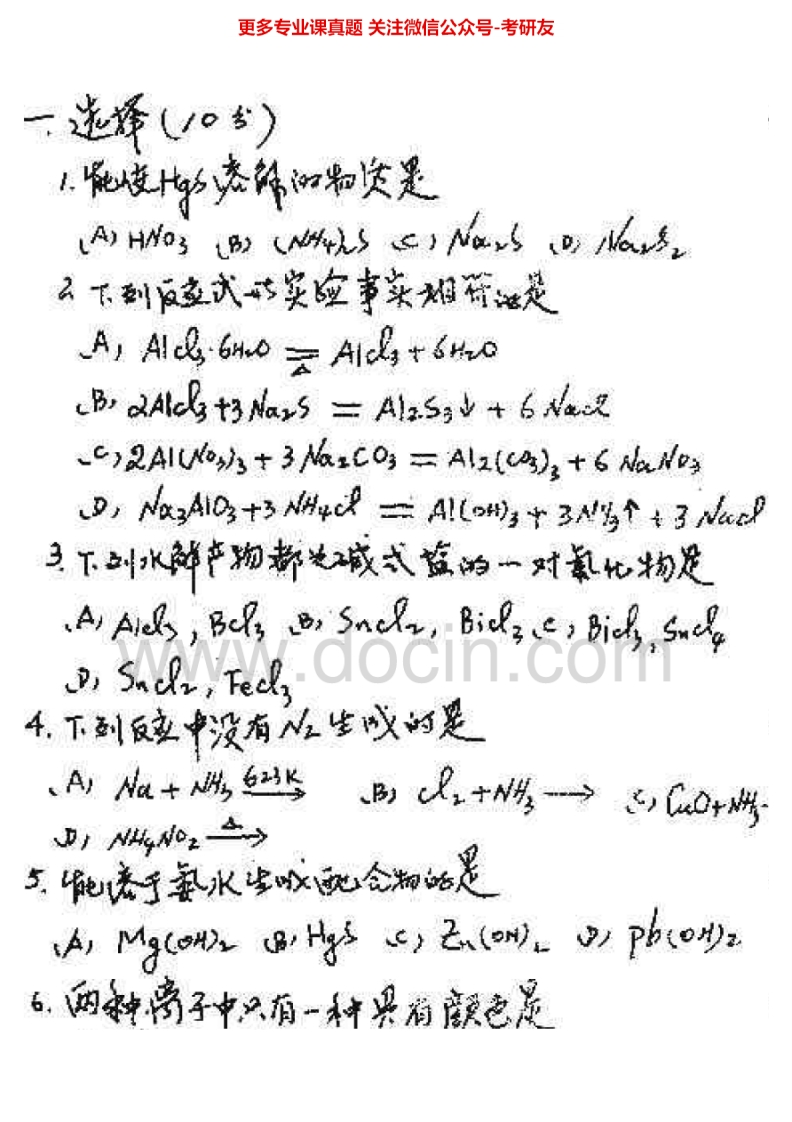 更多专业课真题 关注微信公众号-考研友
一. 选择(10分)
1. 能使HgS溶解的物质是
(A) HNO3 (B) (NH4)2S (C) Na2S (D) Na2S2
2. 下列反应式与实验事实相符的是
(A) AlCl3·6H2O =△= AlCl3 + 6H2O
(B) 2AlCl3 + 3Na2S = Al2S3↓ + 6NaCl
(C) 2Al(NO3)3 + 3Na2CO3 = Al2(CO3)3 + 6NaNO3
(D) Na3AlO3 + 3NH4Cl = Al(OH)3 + 3NH3↑ + 3NaCl
3. 下列水解产物都为碱式盐的一对氯化物是
(A) AlCl3, BCl3 (B) SnCl2, BiCl3 (C) BiCl3, SnCl4
www.docin.com
(D) SnCl2, FeCl3
4. 下列反应中没有N2生成的是
(A) Na + NH3 623K→ (B) Cl2 + NH3 → (C) CuO + NH3-
(D) NH4NO2 △→
5. 能溶于氨水生成配合物的是
(A) Mg(OH)2 (B) HgS (C) Zn(OH)2 (D) Pb(OH)2
6. 两种离子中只有一种具有颜色是